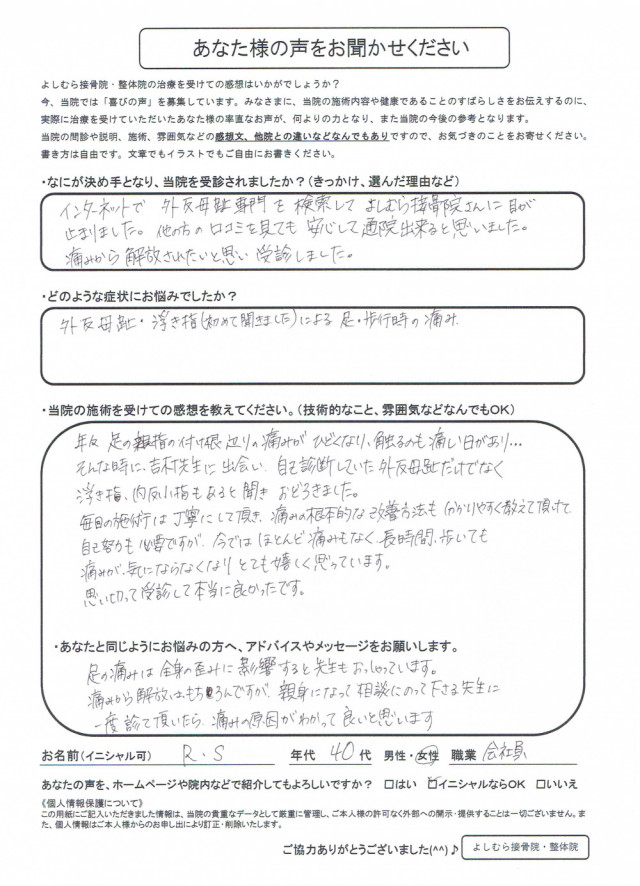 あなた様の声をお聞かせください
よしむら接骨院・整体院の治療を受けての感想はいかがでしょうか？
今、当院では「喜びの声」を募集しています。みなさまに、当院の施術内容や健康であることのすばらしさをお伝えするのに、
実際に治療を受けていただいたあなた様の率直なお声が、何よりの力となり、また当院の今後の参考となります。
当院の問診や説明、施術、雰囲気などの感想文、他院との違いなどなんでもありですので、お気づきのことをお寄せください。
書き方は自由です。文章でもイラストでもご自由にお書きください。
・なにが決め手となり、当院を受診されましたか？（きっかけ、選んだ理由など）
インターネットで 外反母趾専門を検索して よしむら接骨院さんに目が
止まりました。他の方の口コミを見ても 安心して通院出来ると思いました。
痛みから解放されたいと思い 受診しました。
・どのような症状にお悩みでしたか？
外反母趾・浮き指（初めて聞きました）による 足・歩行時の痛み
・当院の施術を受けての感想を教えてください。（技術的なこと、雰囲気などなんでもOK）
年々 足の親指の付け根辺りの痛みがひどくなり、触るのも痛い日があり…
そんな時に、吉村先生に出会い、自己診断していた外反母趾だけでなく
浮き指、内反小指もあると聞き おどろきました。
毎回の施術は丁寧にして頂き、痛みの根本的な改善方法も 分かりやすく教えて頂けて
自己努力も必要ですが、今ではほとんど痛みもなく、長時間、歩いても
痛みが、気にならなくなり とても嬉しく思っています。
思い切って受診して本当に良かったです。
・あなたと同じようにお悩みの方へ、アドバイスやメッセージをお願いします。
足の痛みは 全身の歪みに影響すると先生もおっしゃっています。
痛みから解放はもちろんですが、親身になって相談にのって下さる先生に
一度診て頂いたら、痛みの原因がわかって良いと思います
お名前（イニシャル可） R.S 年代 40代 男性・女性 職業 会社員
あなたの声を、ホームページや院内などで紹介してもよろしいですか？ □はい ☑イニシャルならOK □いいえ
《個人情報保護について》
この用紙にご記入いただきました情報は、当院の貴重なデータとして厳重に管理し、ご本人様の許可なく外部への開示・提供することは一切ございません。ま
た、個人情報はご本人様からのお申し出により訂正・削除いたします。
ご協力ありがとうございました(^^)♪ よしむら接骨院・整体院